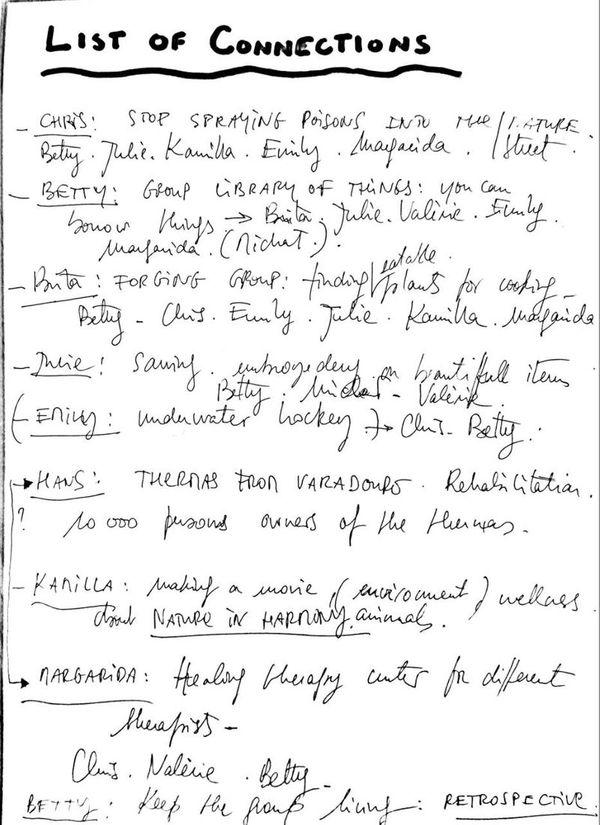 LIST OF CONNECTIONS
- CHRIS: STOP SPRAYING POISONS INTO THE / NATURE.
Betty. Julie. Kamilla. Emily. Margarida. / Street.
- BETTY: GROUP LIBRARY OF THINGS: you can
borrow things → Brita. Julie. Valérie. Emily.
Margarida. (Michat).
eatable.
- Brita: FORGING GROUP: finding / plants for cooking -
Betty - Chris. Emily. Julie. Kamilla. Margarida
- Julie: Sawing. on beautifull items
Betty. - Valérie.
(- EMILY: underwater hockey) → Chris - Betty.
→ HANS: THERMAS FROM VARADOURO. Rehabilitation.
? 10 000 persons owners of the thermas -
- KAMILLA: making a movie, (environment) wellness
about NATURE IN HARMONY, animals.
→ MARGARIDA: Healing therapy center for different
therapists -
Chris. Valérie. Betty -
BETTY: Keep the group living: RETROSPECTIVE.